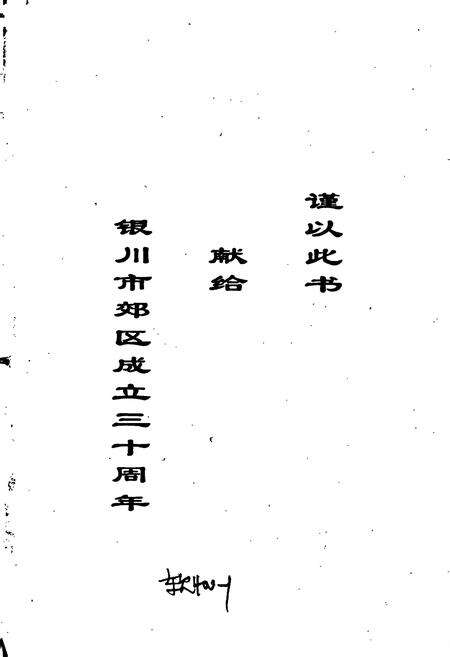 谨以此书
献给
银川市郊区成立三十周年